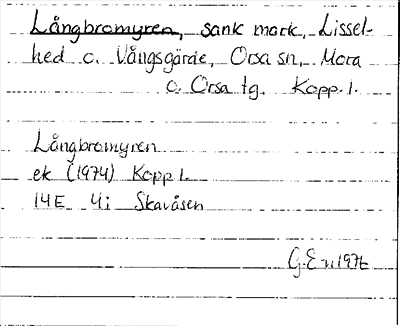 Långbromyren, sank mark, Lissel-
hed o. Vångsgärde, Orsa sn, Mora
o. Orsa tg. Kopp. l.
Långbromyren
ek (1974) Kopp l.
14E 4i Skavåsen